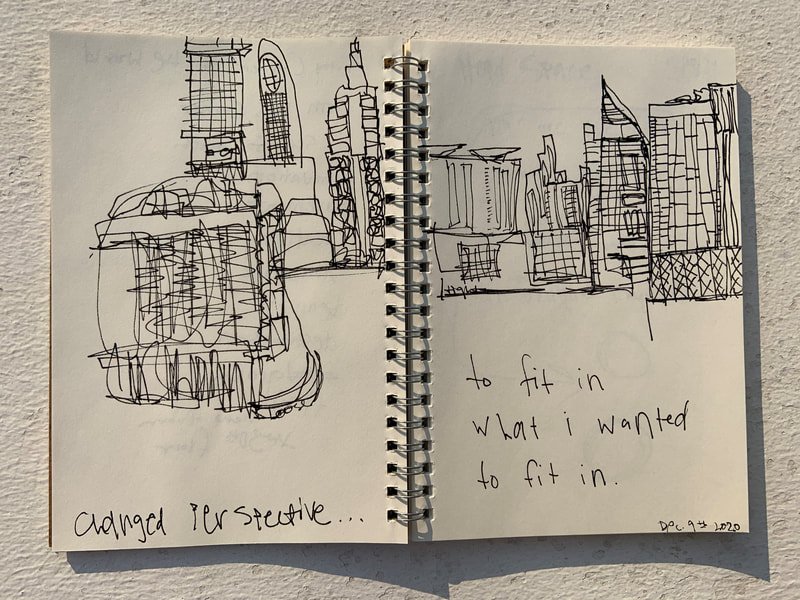 changed perspective...
to fit in
what i wanted
to fit in.
Dec. 9th 2020